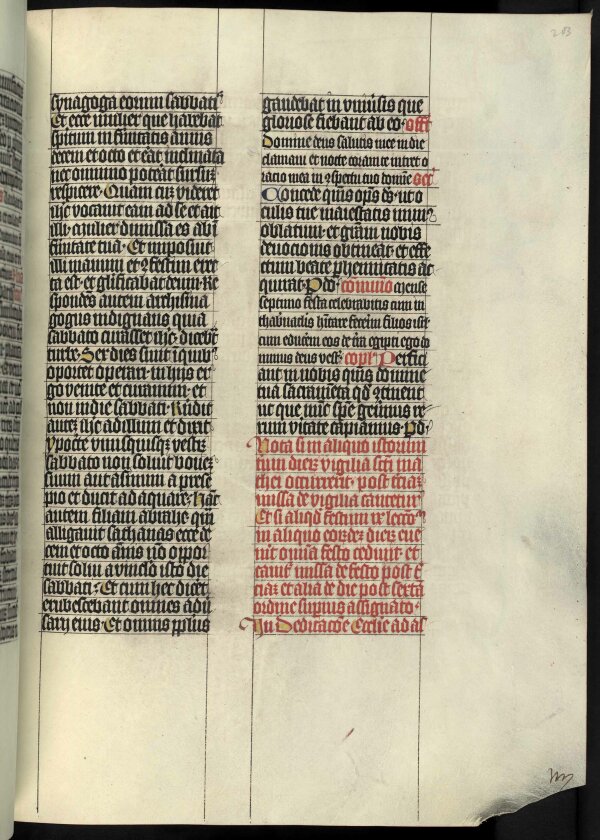 synagoga eorum sabbatis
Et ecce mulier que habebat
spiritum infirmitatis annis
decem et octo et erat inclinata
nec omnino poterat sursum
respicere. Quam cum videret
ihc vocauit eam ad se et ait
illi. mulier dimissa es ab in
firmitate tua. Et imposuit
illi manum et confestim erec
ta est. et glorificabat deum. Re
spondens autem archisina
gogus indignatus quia
sabbato curasset ihc. dicebat
turbe. Sex dies sunt in quibus
oportet operari. in hijs er
go venite et curamini. et
non in die sabbati. Respondit
autem ihc ad illum et dixit
ypocrite vnusquisque vestrum
sabbato non soluit bouem
suum aut asinum a prese
pio et ducit adaquare. Hanc
autem filiam abrahe quam
alligauit sathanas ecce de
cem et octo annis non opor
tuit solui a vinculo isto die
sabbati. Et cum hec diceret
erubescebant omnes aduer
sarij eius. Et omnis populus
gaudebat in vniuersis que
gloriose fiebant ab eo. offr
Domine deus salutis mee in die
clamaui et nocte coram te intret o
ratio mea in conspectu tuo domine Secr
Concede quesumus omnipotens deus. vt o
culis tue maiestatis munus
oblatum. et gratiam nobis
deuocionis obtineat. et effe
ctum beate perhennitatis ac
quirat. Per do. comunio Mense
septimo festa celebrabitis cum in
thabernaculis habitare fecerim filios israel
cum educerem eos de terra egipti ego do
minus deus vester. copl. Perfici
ant in nobis quesumus domine
tua sacramenta quod continent
ut que nunc specie gerimus re
rum veritate capiamus. Per do.
Nota si in aliquo istorum
trium dierum vigilia sancti ma
thei occurrerit. post terciam
missa de vigilia cantetur
Et si aliquod festum ix lectionum
in aliquo eorundem dierum eue
nerit omnia festo cedunt. et
canitur missa de festo post ter
ciam et alia de die post sextam
ordine superius assignato.
In Dedicacione Ecclesie ad al